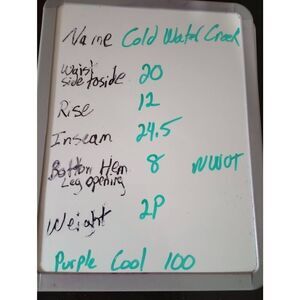 Name Cold Water Creek
Waist side to side 20
Rise 12
Inseam 24.5
Bottom Hem Leg opening 8 NWOT
Weight 2P
Purple Cool 100